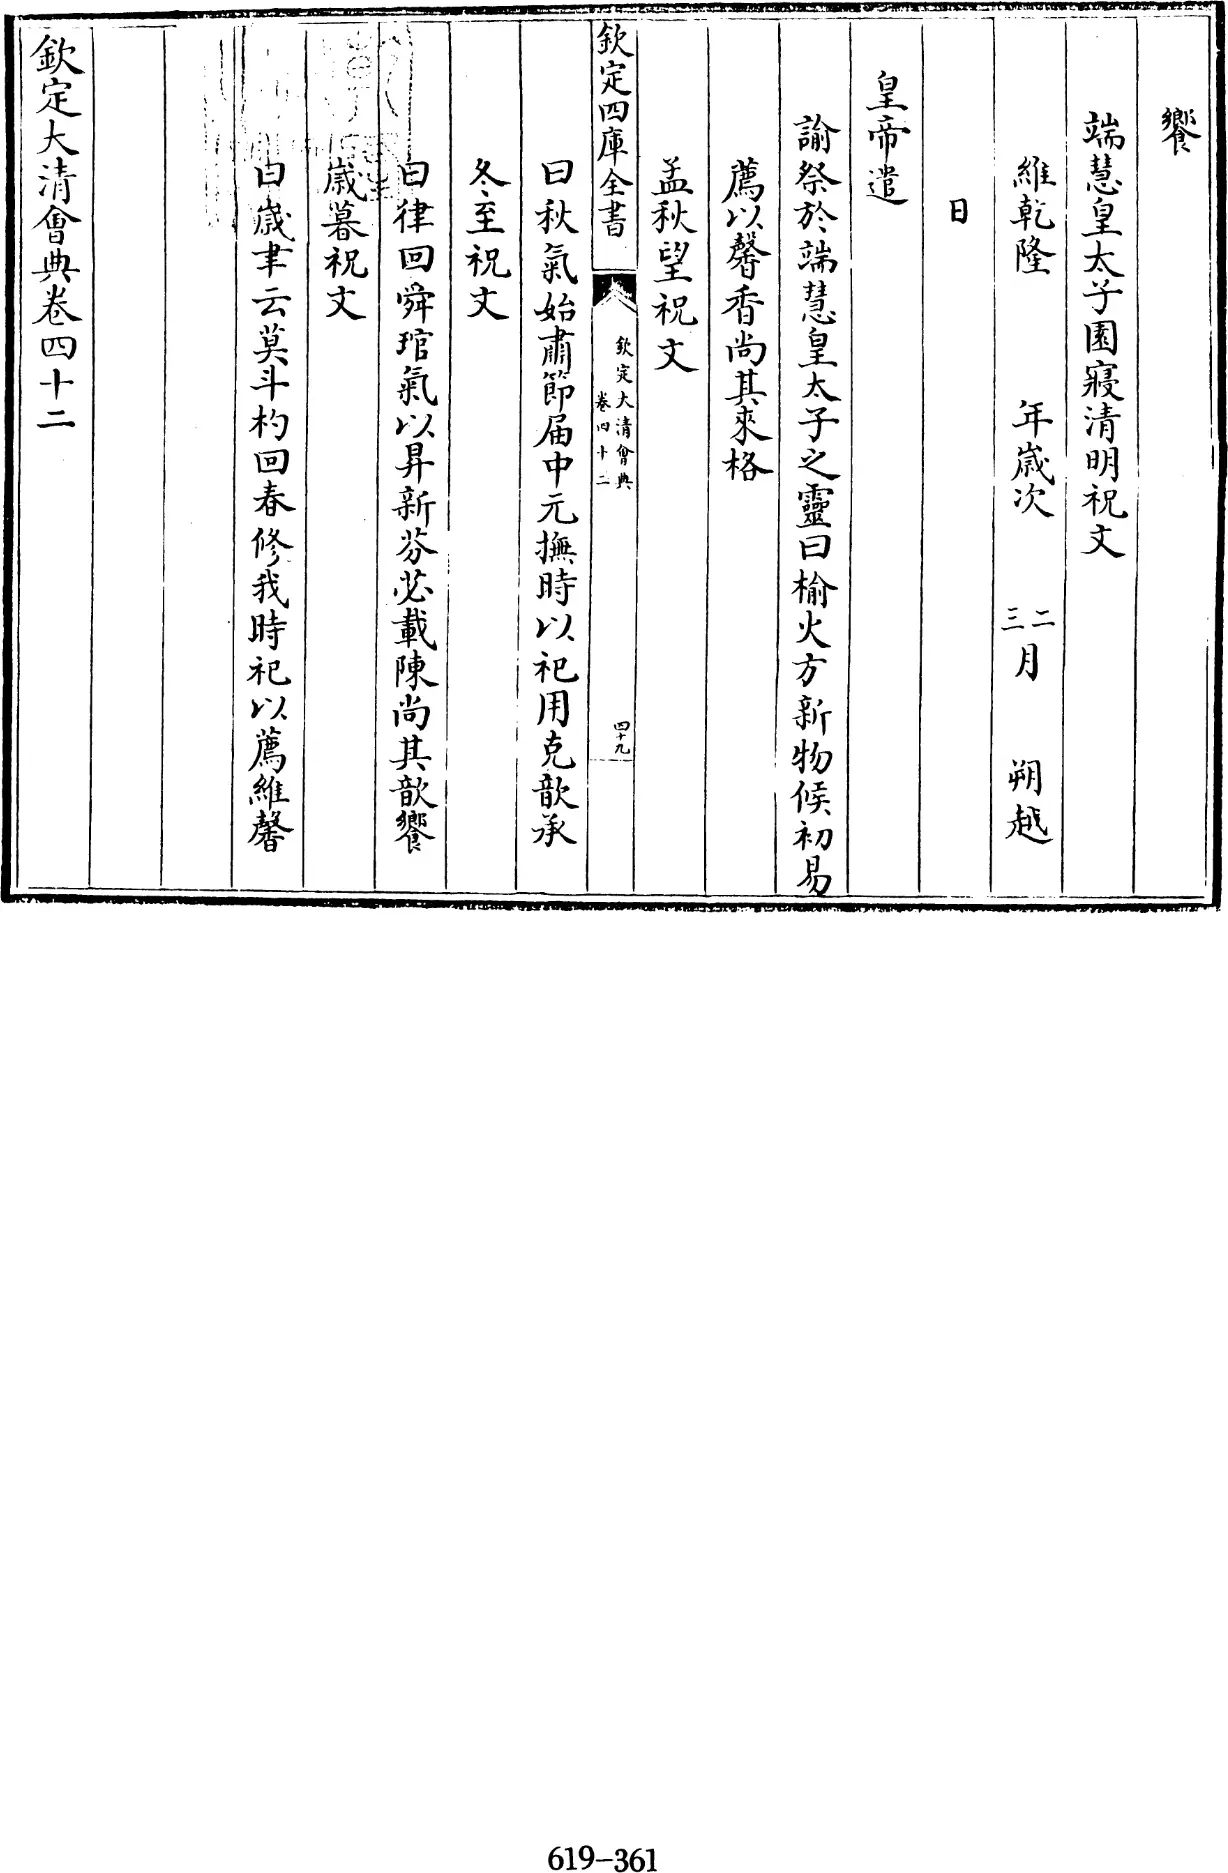 饗
端慧皇太子園寢清明祝文
維乾隆 年歲次 二三月 朔越
日
皇帝遣
諭祭於端慧皇太子之靈曰榆火方新物候初易
薦以馨香尚其來格
孟秋望祝文
欽定四庫全書
欽定大清會典
卷四十二
四十九
曰秋氣始肅節届中元撫時以祀用克歆承
冬至祝文
曰律回舜琯氣以昇新芬苾載陳尚其歆饗
歲暮祝文
曰歲聿云莫斗杓回春修我時祀以薦維馨
欽定大清會典卷四十二
619-361